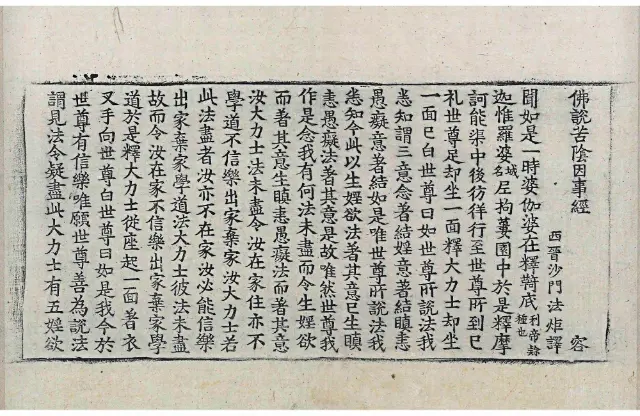 佛說苦陰因事經 容
西晉沙門法炬譯
聞如是一時婆伽婆在釋羇底利帝隸種也
迦惟羅婆城名尼拘蔞園中於是釋摩
訶能渠中後彷徉行至世尊所到已
礼世尊足却坐一面釋大力士却坐
一面已白世尊曰如世尊所說法我
悉知謂三意念著結婬意著結瞋恚
愚癡意著結如是唯世尊所說法我
悉知今此以生婬欲法著其意已生瞋
恚愚癡法著其意是故唯然世尊我
作是念我有何法未盡而令生婬欲
而著其意生瞋恚愚癡法而著其意
汝大力士法未盡令汝在家住亦不
學道不信樂出家棄家汝大力士若
此法盡者汝亦不在家汝必能信樂
出家棄家學道法大力士彼法未盡
故而令汝在家不信樂出家棄家學
道於是釋大力士從座起一面著衣
叉手向世尊白世尊曰如是我今於
世尊有信樂唯願世尊善為說法
謂見法令疑盡此大力士有五婬欲